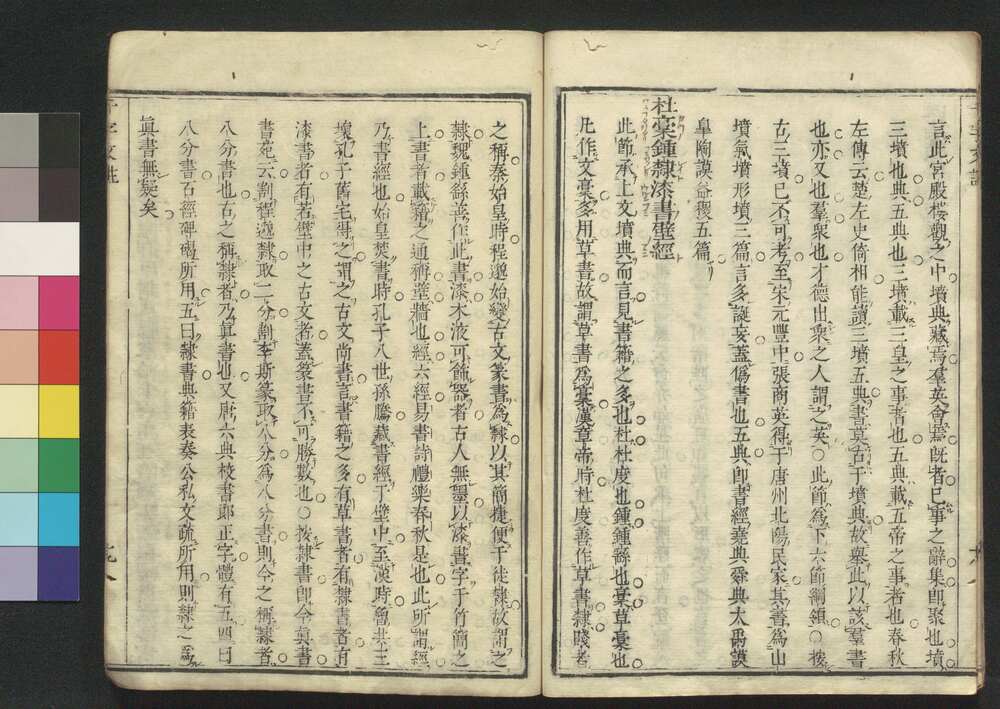 言此宮殿樓觀之中墳典藏焉羣英會焉既者已事之辭集卽聚也墳
三墳也典五典也三墳載三皇之事者也五典載五帝之事者也春秋
左傳云楚左史倚相能讀三墳五典書莫古于墳典故舉此以該羣書
也亦又也羣衆也才德出衆之人謂之英○此節為下六節綱領○按
古三墳已不可考至宋元豐中張商英得于唐州北陽民家其書為山
墳氣墳形墳三篇言多誕妄蓋僞書也五典卽書經堯典舜典大禹謨
皐陶謨益稷五篇
杜稾鍾隸漆書壁經
此節承上文墳典而言見書籍之多也杜杜度也鍾鍾繇也稾草稾也
凡作文稾多用草書故謂草書為稾漢章帝時杜度善作草書隸賤者
之稱秦始皇時程邈始變古文篆書為隸以其簡捷便于徒隸故謂之
隸魏鍾繇善作此書漆木液可飾器者古人無墨以漆書字于竹簡之
上書者載籍之通稱壁牆也經六經易書詩禮樂春秋是也此所謂經
乃書經也始皇焚書時孔子八世孫騰藏書經于壁中至漢時魯共王
壞孔子舊宅得之謂之古文尚書言書籍之多有草書者有隸書者有
漆書者有若壁中之古文者蓋篆書不可勝數也○按隸書卽今眞書
書苑云割程邈隸取二分割李斯篆取八分為八分書則今之稱隸者
八分書也古之稱隸者乃眞書也又唐六典校書郎正字體有五四曰
八分書石經碑碣所用五曰隸書典籍表奏公私文疏所用則隸之為
眞書無疑矣